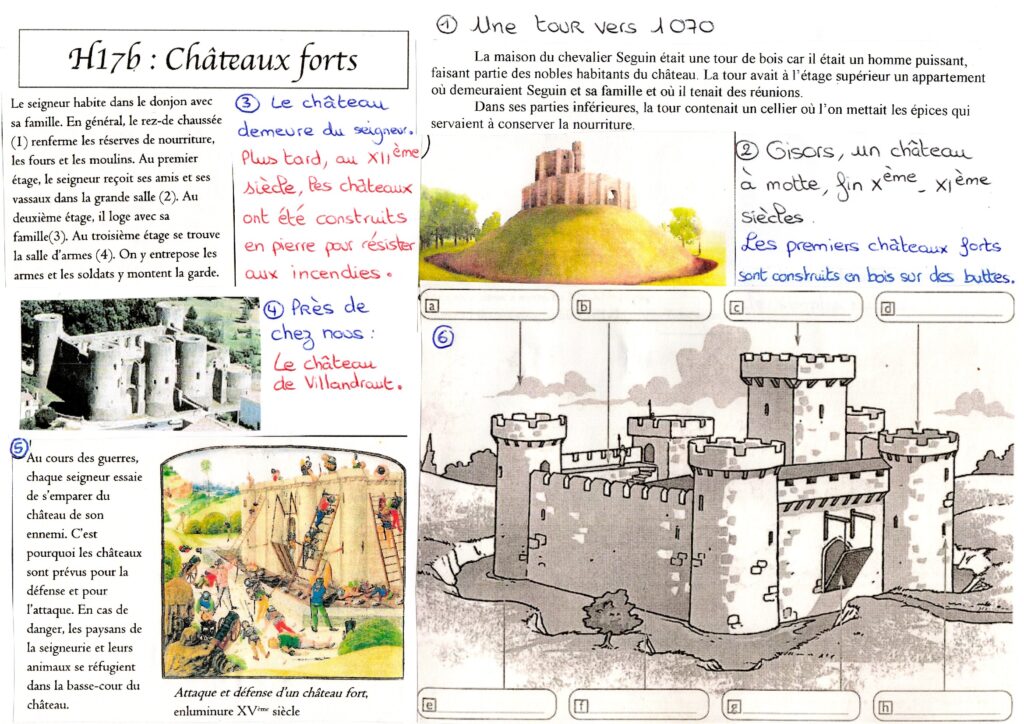 H17b : Châteaux forts
Le seigneur habite dans le donjon avec
sa famille. En général, le rez-de chaussée
(1) renferme les réserves de nourriture,
les fours et les moulins. Au premier
étage, le seigneur reçoit ses amis et ses
vassaux dans la grande salle (2). Au
deuxième étage, il loge avec sa
famille(3). Au troisième étage se trouve
la salle d'armes (4). On y entrepose les
armes et les soldats y montent la garde.
③ Le château
demeure du seigneur.
Plus tard, au XIIème
siècle, les châteaux
ont été construits
en pierre pour résister
aux incendies.
① Une tour vers 1070
La maison du chevalier Seguin était une tour de bois car il était un homme puissant,
faisant partie des nobles habitants du château. La tour avait à l'étage supérieur un appartement
où demeuraient Seguin et sa famille et où il tenait des réunions.
Dans ses parties inférieures, la tour contenait un cellier où l'on mettait les épices qui
servaient à conserver la nourriture.
② Gisors, un château
à motte, fin Xème - XIème
siècles.
Les premiers châteaux forts
sont construits en bois sur des buttes.
④ Près de
chez nous :
Le château
de Villandraut.
⑤ Au cours des guerres,
chaque seigneur essaie
de s'emparer du
château de son
ennemi. C'est
pourquoi les châteaux
sont prévus pour la
défense et pour
l'attaque. En cas de
danger, les paysans de
la seigneurie et leurs
animaux se réfugient
dans la basse-cour du
château.
Attaque et défense d'un château fort,
enluminure XVème siècle
a b c d
⑥
e f g h